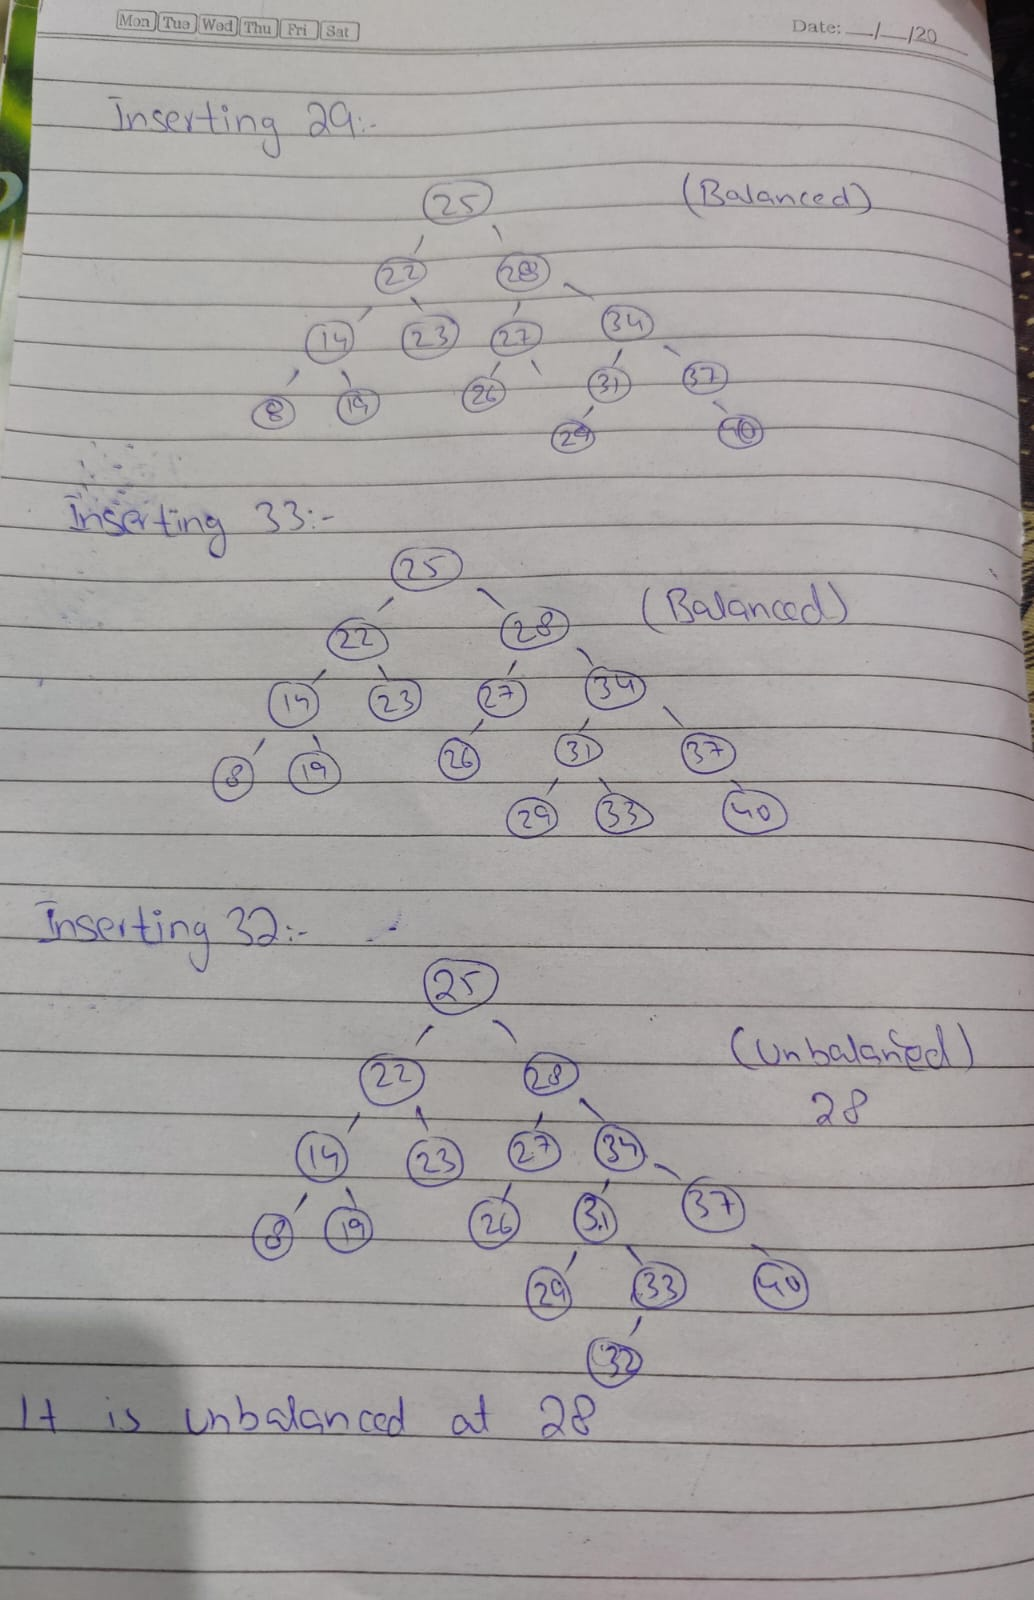 Mon Tue Wed Thu Fri Sat
Date: __/__/20__
Inserting 29:-
25 (Balanced)
22 28
14 23 27 34
8 19 26 31 37
29 40
Inserting 33:-
25 (Balanced)
22 28
14 23 27 34
8 19 26 31 37
29 33 40
Inserting 32:-
25
(Unbalanced)
22 28
28
14 23 27 34
8 19 26 31 37
29 33 40
32
It is unbalanced at 28